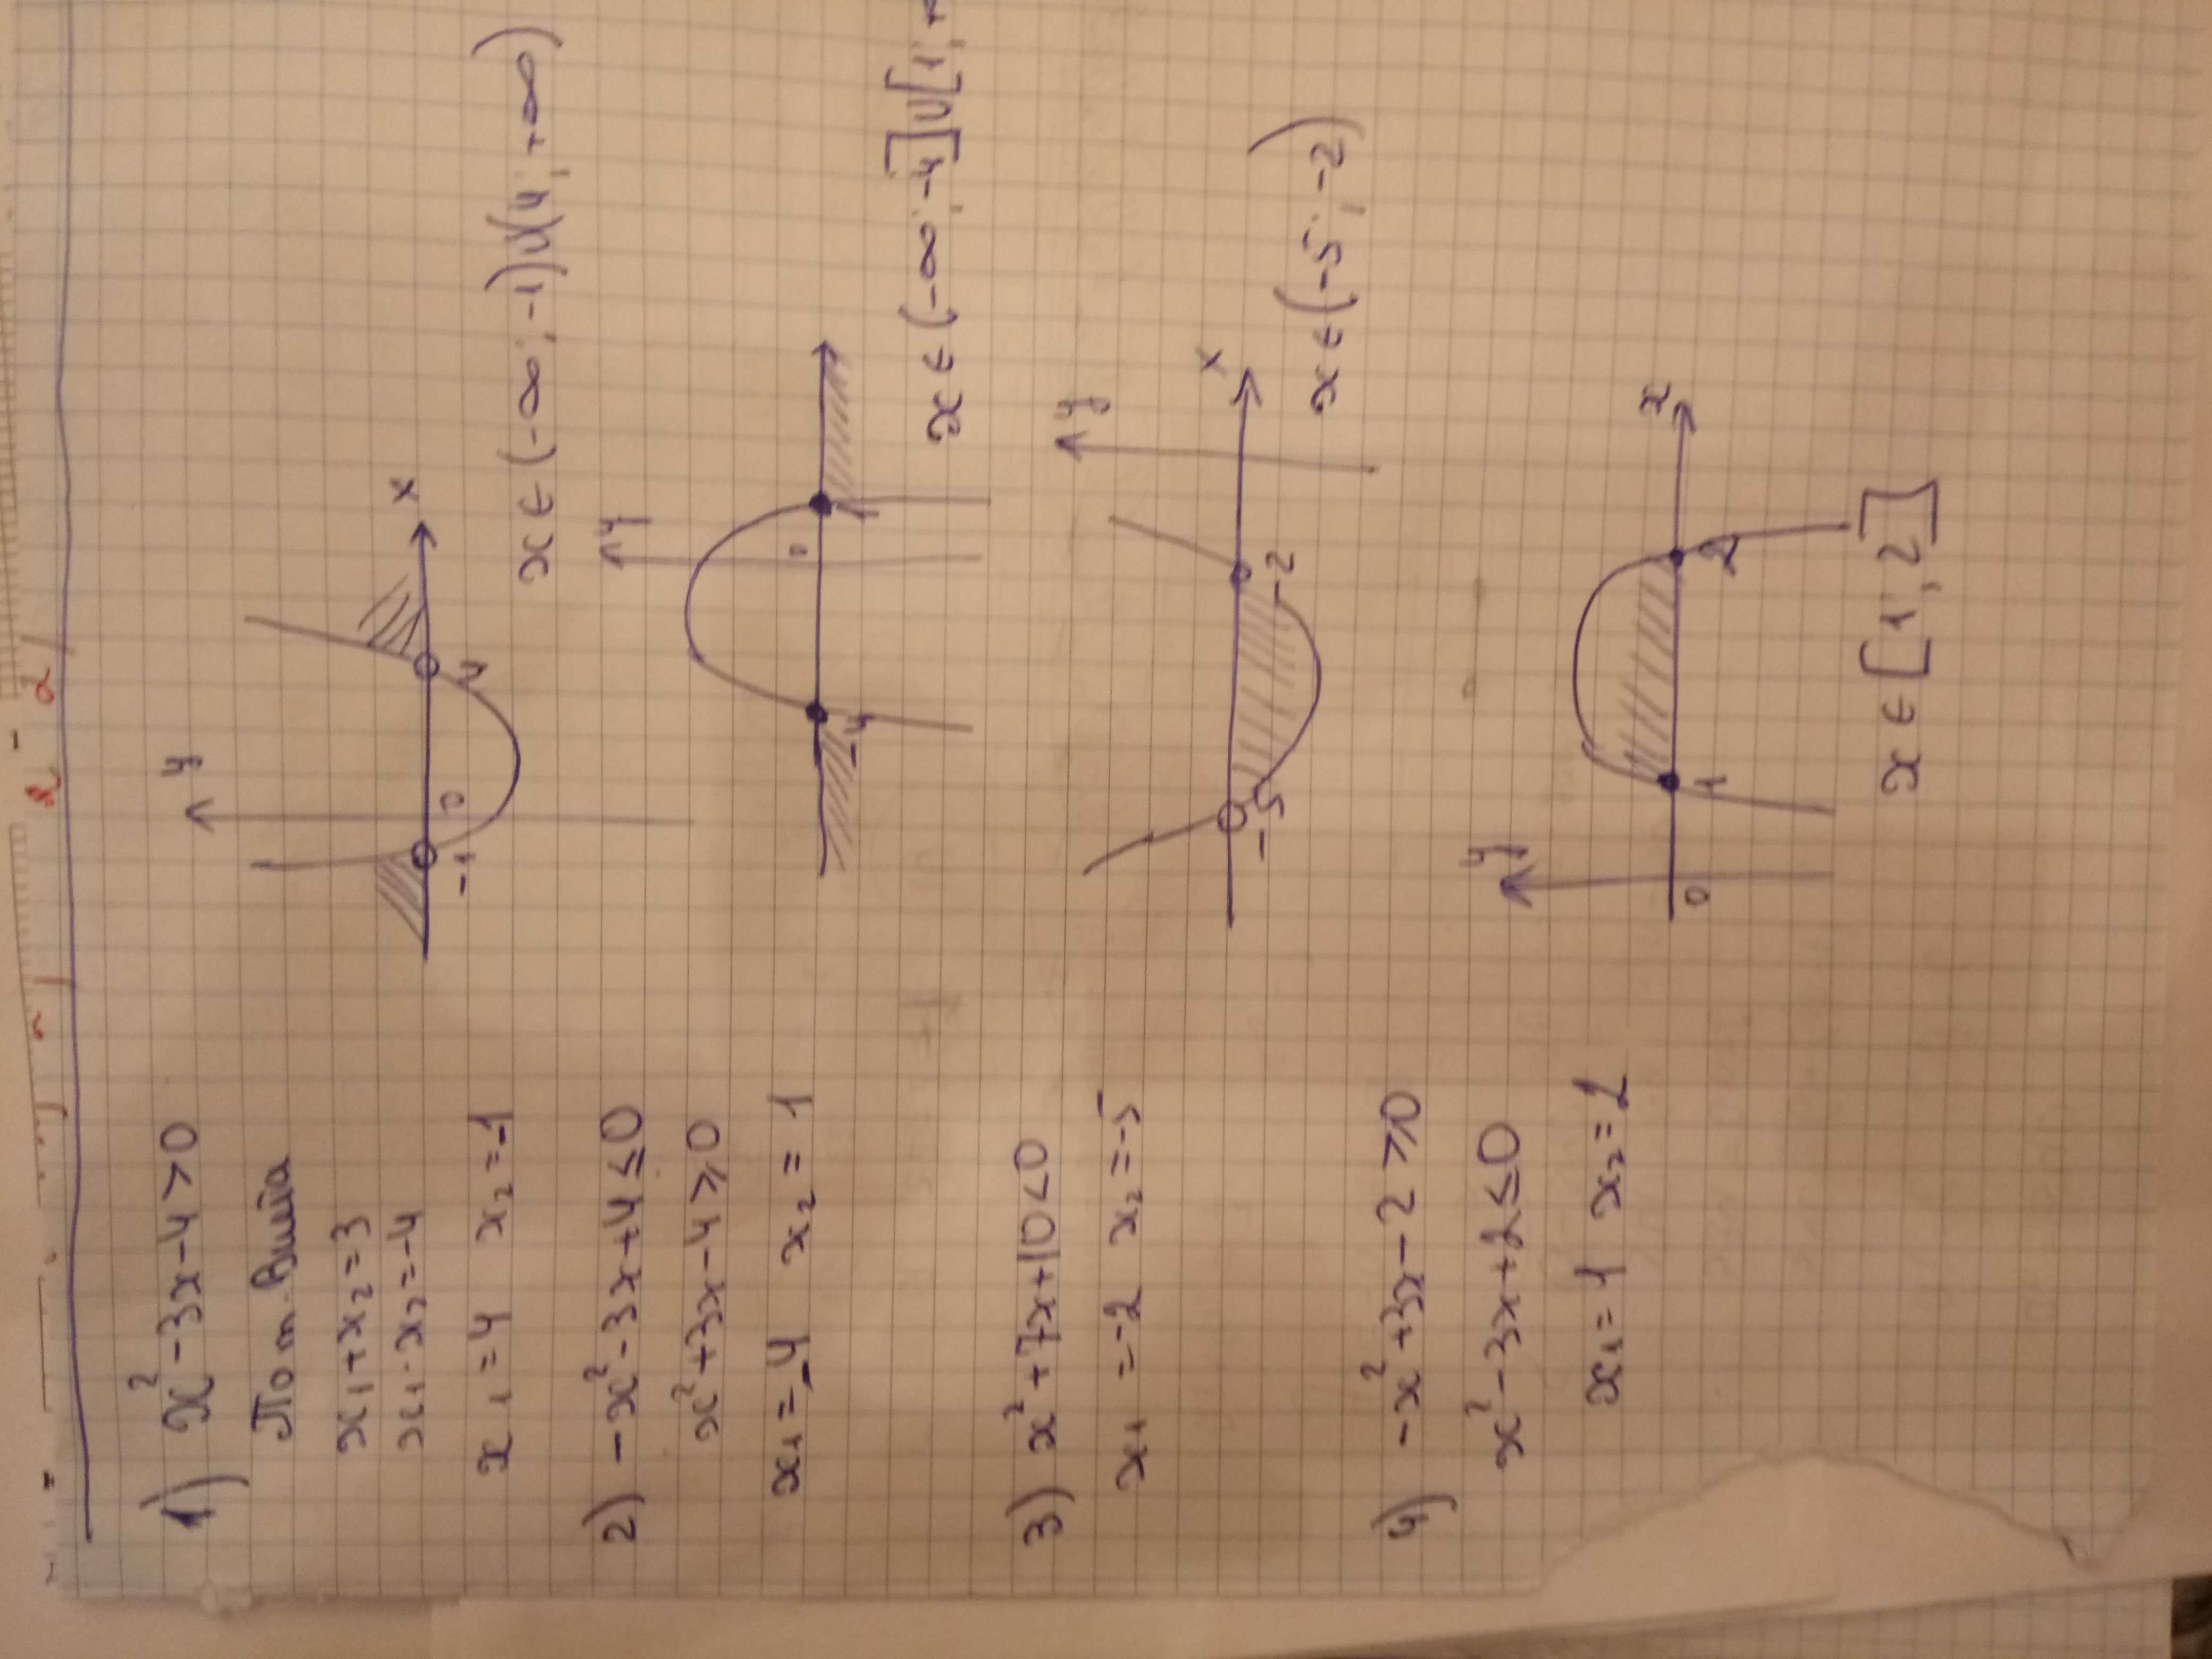 1) x² - 3x - 4 > 0
По т. Виета
x₁ + x₂ = 3
x₁ · x₂ = -4
x₁ = 4 x₂ = -1
y
-1 0 4 x
x ∈ (-∞; -1) ∪ (4; +∞)
2) -x² - 3x + 4 ≤ 0
x² + 3x - 4 ≥ 0
x₁ = -4 x₂ = 1
y
-4 0 1
x ∈ (-∞; -4] ∪ [1; +
3) x² + 7x + 10 < 0
x₁ = -2 x₂ = -5
y
-5 -2 x
x ∈ (-5; -2)
4) -x² + 3x - 2 ≥ 0
x² - 3x + 2 ≤ 0
x₁ = 1 x₂ = 2
y
0 1 2 x
x ∈ [1; 2]